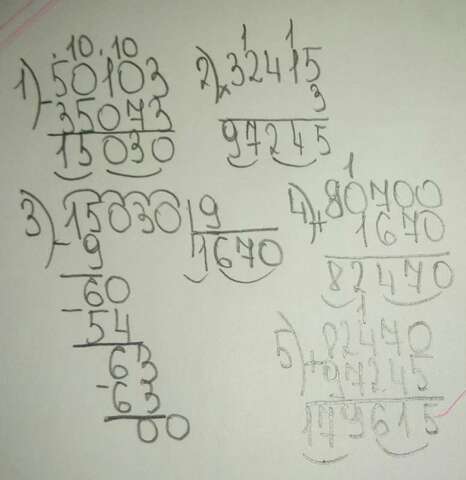 .10.10
1) 50103
- 35073
15030
1 1
2) 32415
× 3
97245
3) 15030 9
- 9 1670
60
- 54
63
- 63
00
1
4) 80700
+ 1670
82470
1
5) 82470
+ 97245
179615